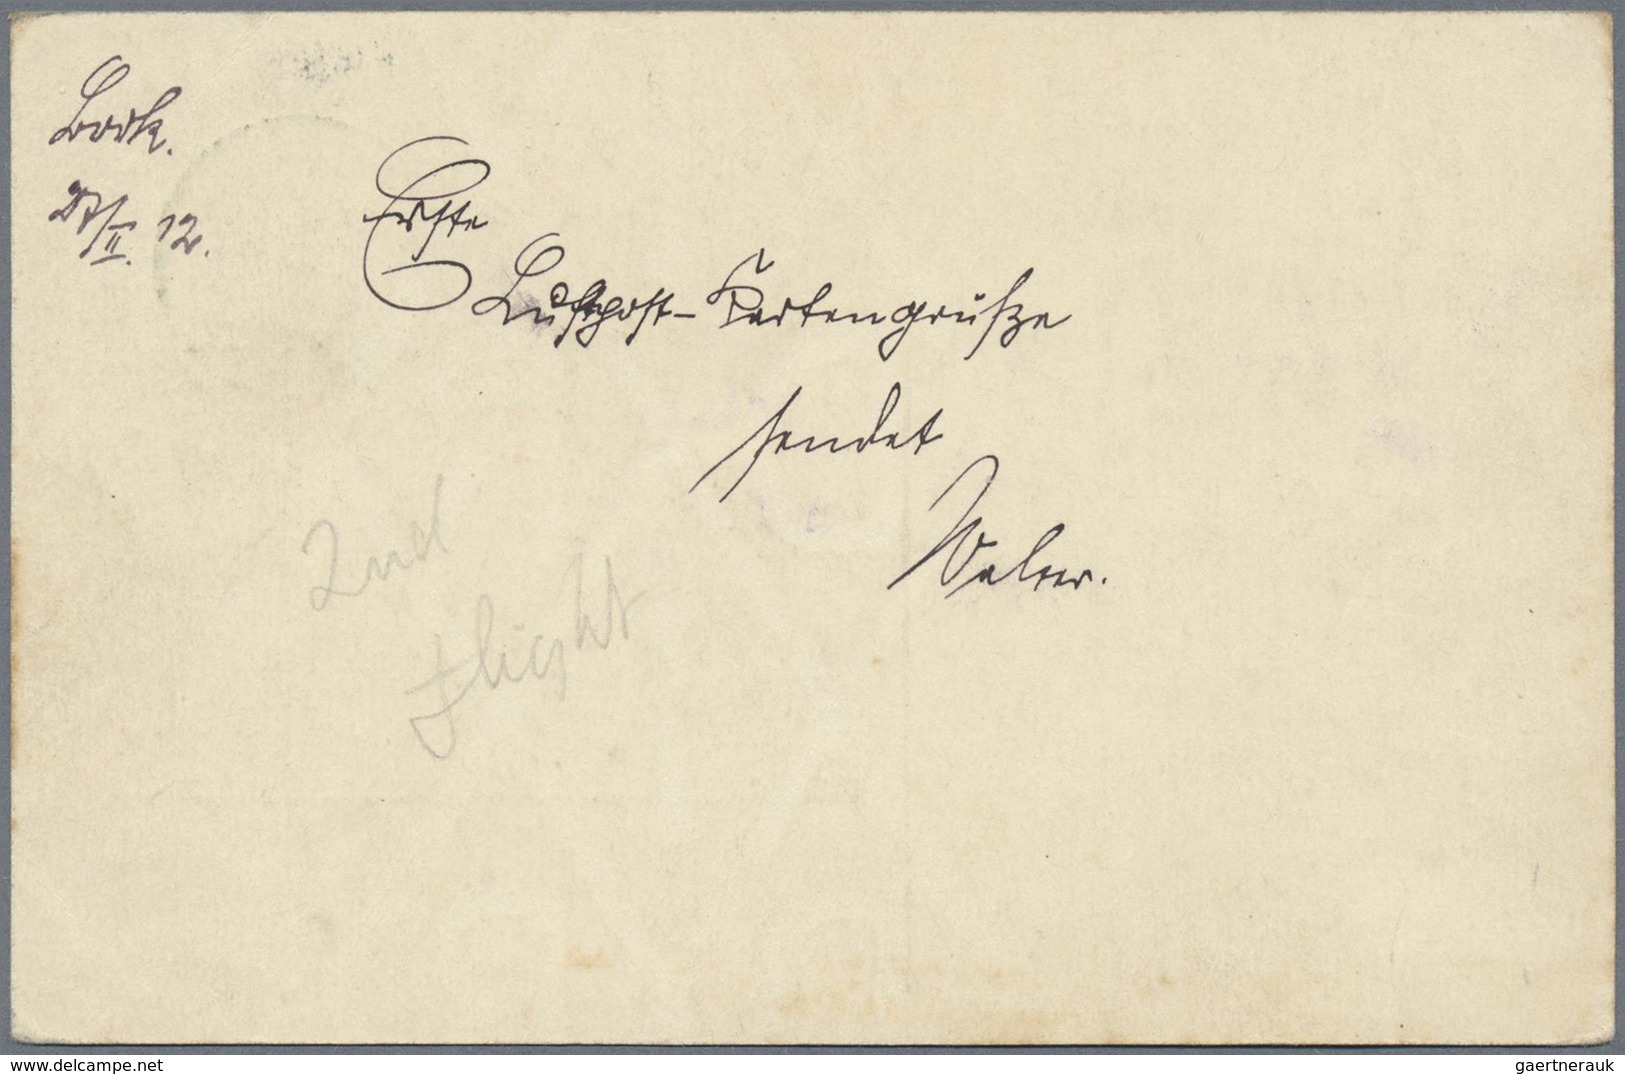 Bork.
27/II. 12.
Erste
Luftpost-Kartengrüße
sendet
Walter.
2nd
flight
www.delcampe.net
gaertnerauk